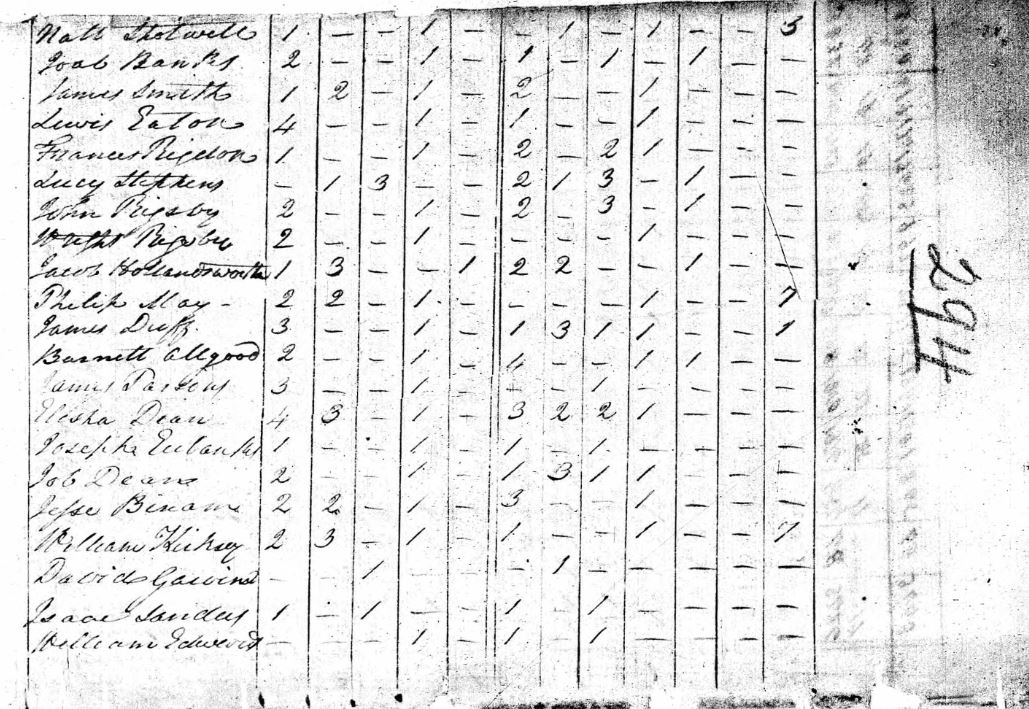 Natt Shotwell 1 – – 1 – – 1 – 1 – – 3
Joab Banks 2 – – 1 – 1 – 1 – 1 – –
James Smith 1 2 – 1 – 2 – – 1 – – –
Lewis Eaton 4 – – 1 – 1 – – 1 – – –
Frances Rigdon 1 – – 1 – 2 – 2 1 – – –
Lucy Stephens – 1 3 – – 2 1 3 – 1 – –
John Rigsby 2 – – 1 – 2 – 3 – 1 – –
Wright Rigsby 2 – – 1 – – – – 1 – – –
Jacob Hollandsworth 1 3 – – 1 2 2 – – 1 – –
Philip May – 2 2 – 1 – – – – 1 – – 7
James Duff 3 – – 1 – 1 3 1 1 – – 1
Barnett Allgood 2 – – 1 – 4 – – 1 1 – –
James Parsons 3 – – 1 – – – 1 – – – –
Elisha Dean 4 3 – 1 – 3 2 2 1 – – –
Josepha Eubanks 1 – – 1 – 1 – 1 – – – –
Job Deane 2 – – 1 – 1 3 1 1 – – –
Jesse Binam 2 2 – 1 – 3 – – 1 – – –
William Kirksey 2 3 – 1 – 1 – – 1 – – 7
David – – 1 – – – 1 – – – – –
Isaac Sanders 1 – 1 – – 1 – 1 – – – –
William – – – 1 – 1 – 1 – – – –
294